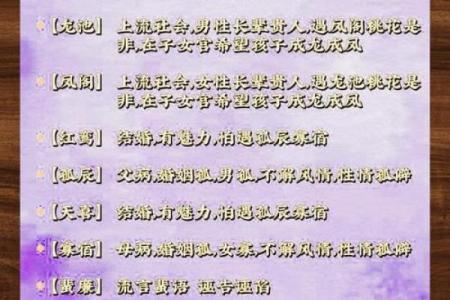 【龙池】 上流社会,男性长辈贵人,遇凤阁桃花是
非,在子女宫希望孩子成龙成凤
【凤阁】 上流社会,女性长辈贵人,遇龙池桃花是
非,在子女宫希望孩子成龙成凤
【红鸾】 结婚,有魅力,怕遇孤辰寡宿
【孤辰】 父病,婚姻孤,男孤,不解风情,性情孤僻
【天喜】 结婚,有魅力,怕遇孤辰寡宿
【寡宿】 母病,婚姻孤,女寡,不解风情,性情孤僻
【蜚廉】 流言蜚语 诬告诬谄